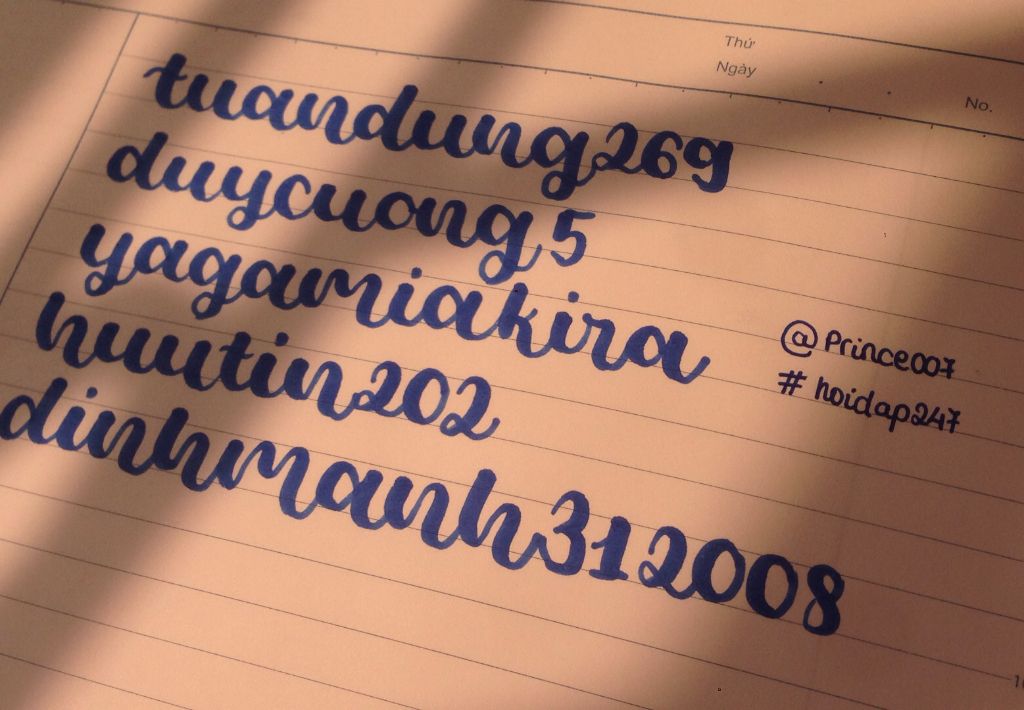 Thứ
Ngày
No.
tuandung269
duycuong5
yagamiakira
huutin202
dinhmanh312008
@Prince007
# hoidap247